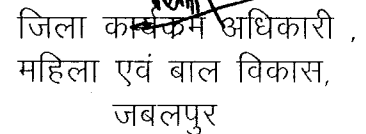 जिला कार्यक्रम अधिकारी ,
महिला एवं बाल विकास,
जबलपुर